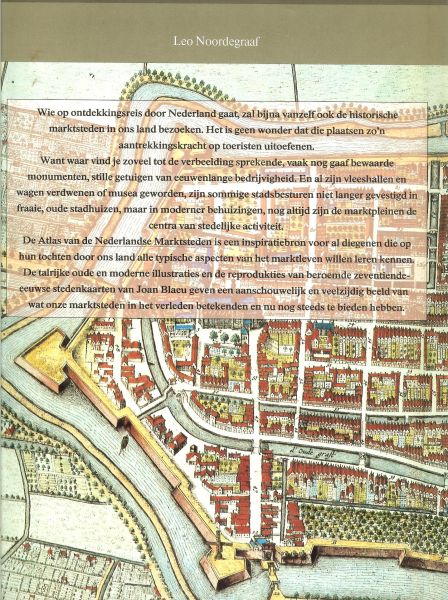 Leo Noordegraaf
Wie op ontdekkingsreis door Nederland gaat, zal bijna vanzelf ook de historische
marktsteden in ons land bezoeken. Het is geen wonder dat die plaatsen zo'n
aantrekkingskracht op toeristen uitoefenen.
Want waar vind je zoveel tot de verbeelding sprekende, vaak nog gaaf bewaarde
monumenten, stille getuigen van eeuwenlange bedrijvigheid. En al zijn vleeshallen en
wagen verdwenen of musea geworden, zijn sommige stadsbesturen niet langer gevestigd in
fraaie, oude stadhuizen, maar in moderner behuizingen, nog altijd zijn de marktpleinen de
centra van stedelijke activiteit.
De Atlas van de Nederlandse Marktsteden is een inspiratiebron voor al diegenen die op
hun tochten door ons land alle typische aspecten van het marktleven willen leren kennen.
De talrijke oude en moderne illustraties en de reprodukties van beroemde zeventiende-
eeuwse stedenkaarten van Joan Blaeu geven een aanschouwelijk en veelzijdig beeld van
wat onze marktsteden in het verleden betekenden en nu nog steeds te bieden hebben.
d'Oude graft